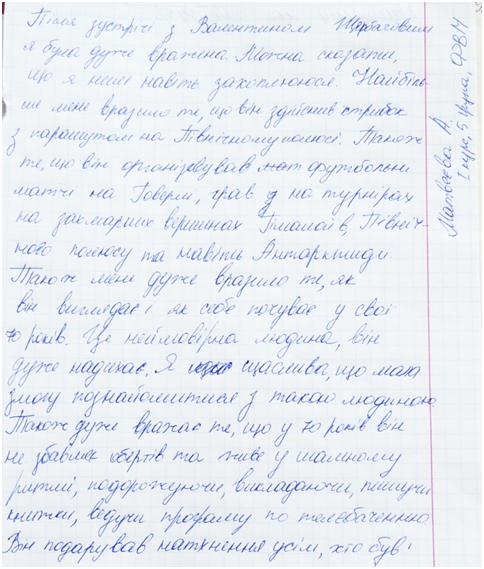 Після зустрічі з Валентином Щербачовим
я була дуже вражена. Можна сказати,
що я ним навіть захоплююся. Найбіль-
ше мене вразило те, що він здійснив стрибок
з парашутом на Північному полюсі. Також
те, що він організовував футбольні
матчі на Говерлі, грав у на турнірах
на захмарних вершинах Гімалаїв, Північ-
ного полюсу та навіть Антарктиди.
Також мене дуже вразило те, як
він виглядає і як себе почуває у свої
70 років. Це неймовірна людина, він
дуже надихає. Я щаслива, що мала
змогу познайомитися з такою людиною
Також дуже вражає те, що у 70 років він
не збавляє обертів та живе у шаленому
ритмі, подорожуючи, викладаючи, пишучи
книжки, ведучи програму по телебаченню.
Він подарував натхнення усім, хто був
Матвєєва А.
І курс, 5 група, ФВМ